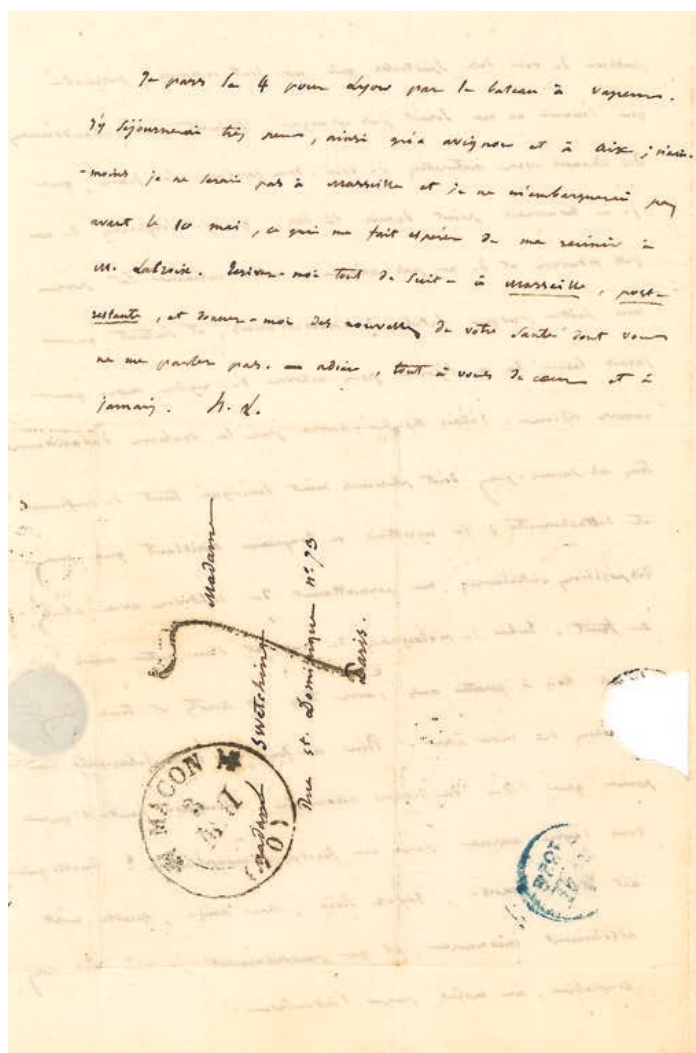 Je pars le 4 pour Lyon par le bateau à vapeur.
J'y séjournerai très peu, ainsi qu'à avignon et à Aix; néan-
-moins je ne serai pas à Marseille et je ne m'embarquerai pas
avant le 10 mai, ce qui me fait espérer de me réunir à
M. Lacroix. Ecrivez-moi tout de suite à Marseille, poste-
restante, et donnez-moi des nouvelles de votre santé dont vous
ne me parlez pas. — adieu, tout à vous de cœur et à
jamais. H. L.
Madame
Madame Swetchine
Rue St. Dominique n° 73
Paris.
MACON
3
MAI